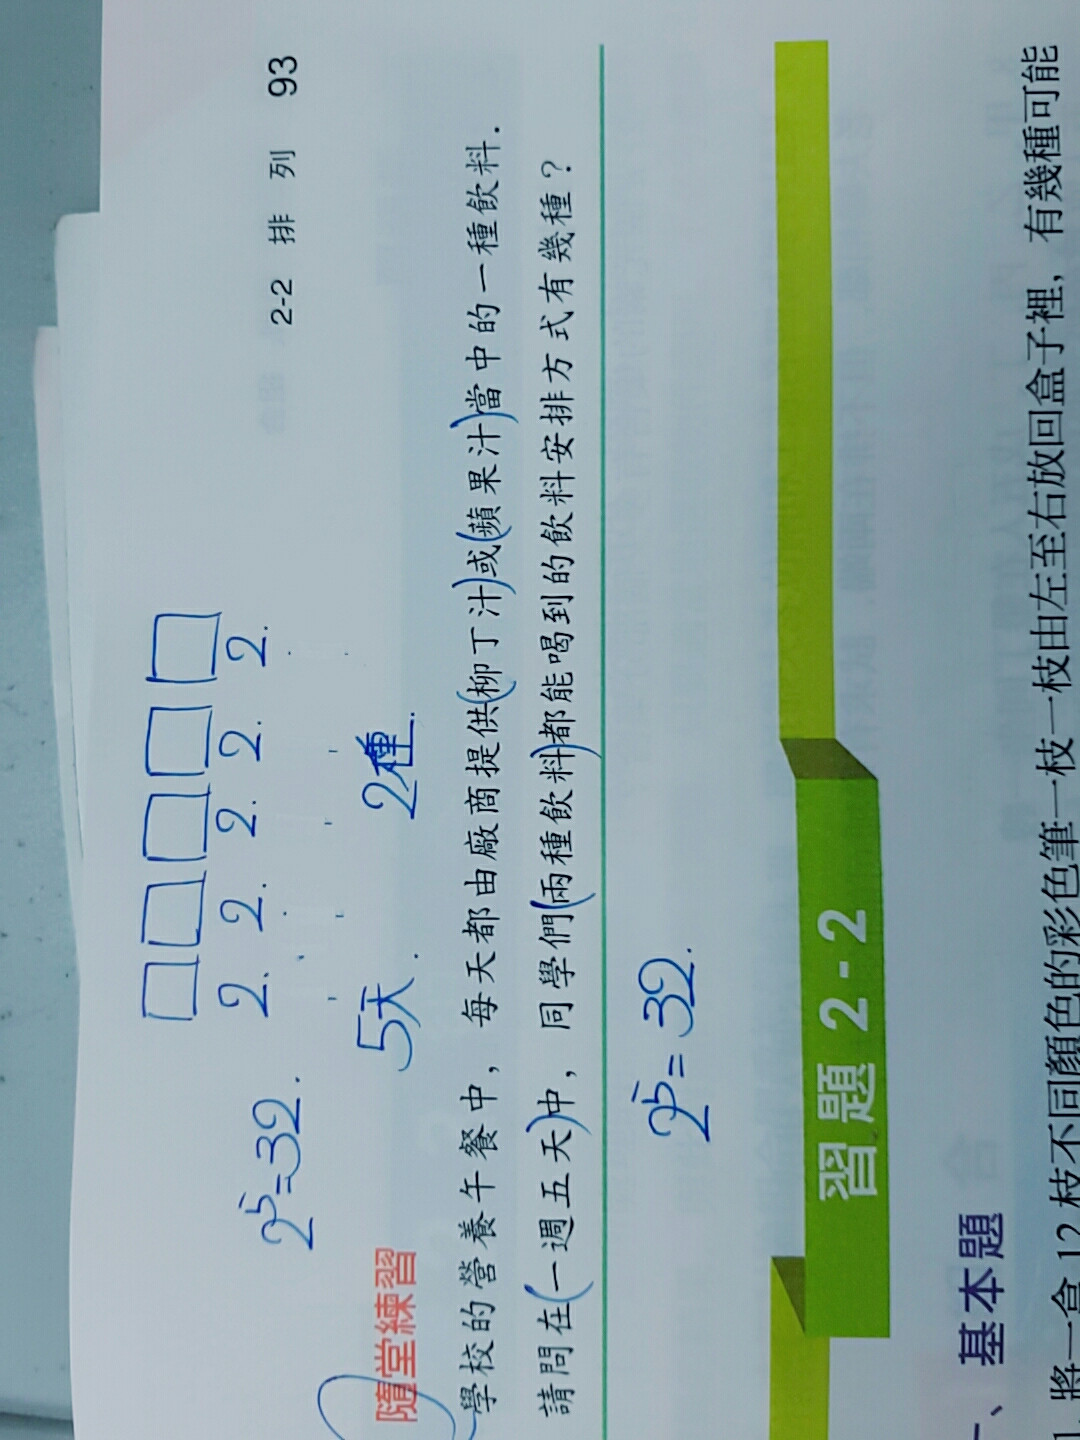 2-2 排 列 93
2. 2. 2. 2. 2.
2⁵=32.
5天. 2種.
隨堂練習
學校的營養午餐中，每天都由廠商提供(柳丁汁)或(蘋果汁)當中的一種飲料.
請問在(一週五天)中，同學們(兩種飲料)都能喝到的飲料安排方式有幾種？
2⁵=32.
習題 2-2
一、基本題
1. 將一盒 12 枝不同顏色的彩色筆一枝一枝由左至右放回盒子裡，有幾種可能